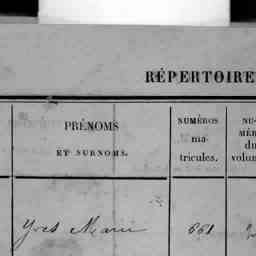 RÉPERTOIRE
PRÉNOMS
ET SURNOMS.
NUMÉROS
ma-
tricules.
NU-
MÉR
du
volum
Yves Marie
661